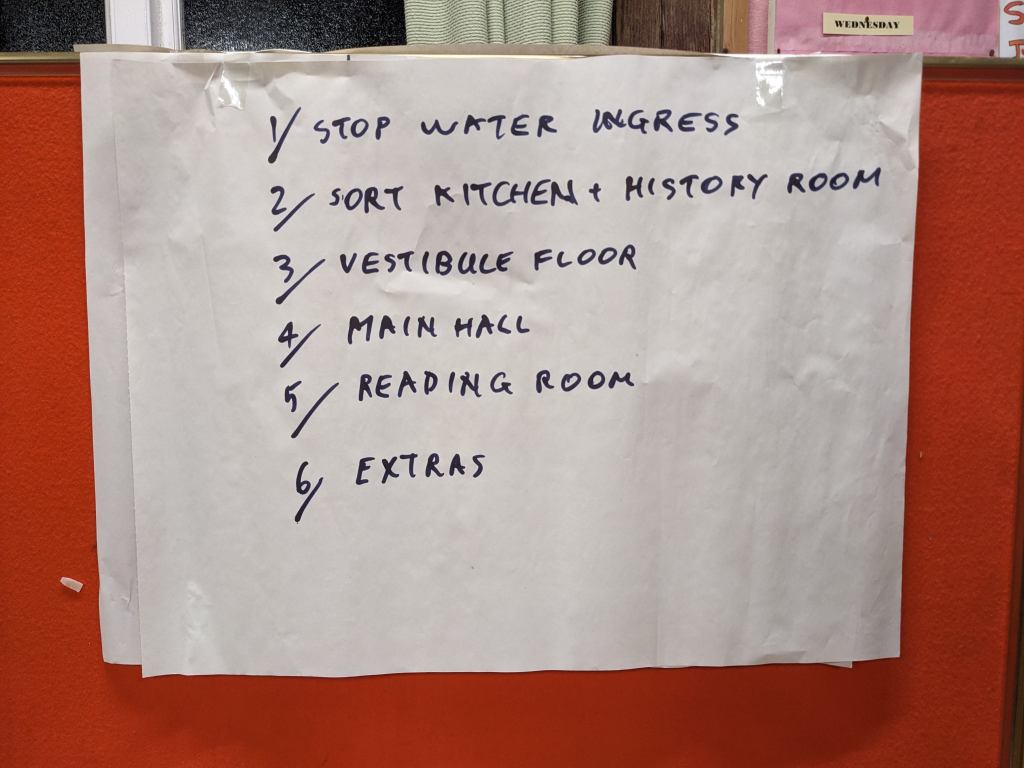 WEDNESDAY
1/ STOP WATER INGRESS
2/ SORT KITCHEN + HISTORY ROOM
3/ VESTIBULE FLOOR
4/ MAIN HALL
5/ READING ROOM
6/ EXTRAS